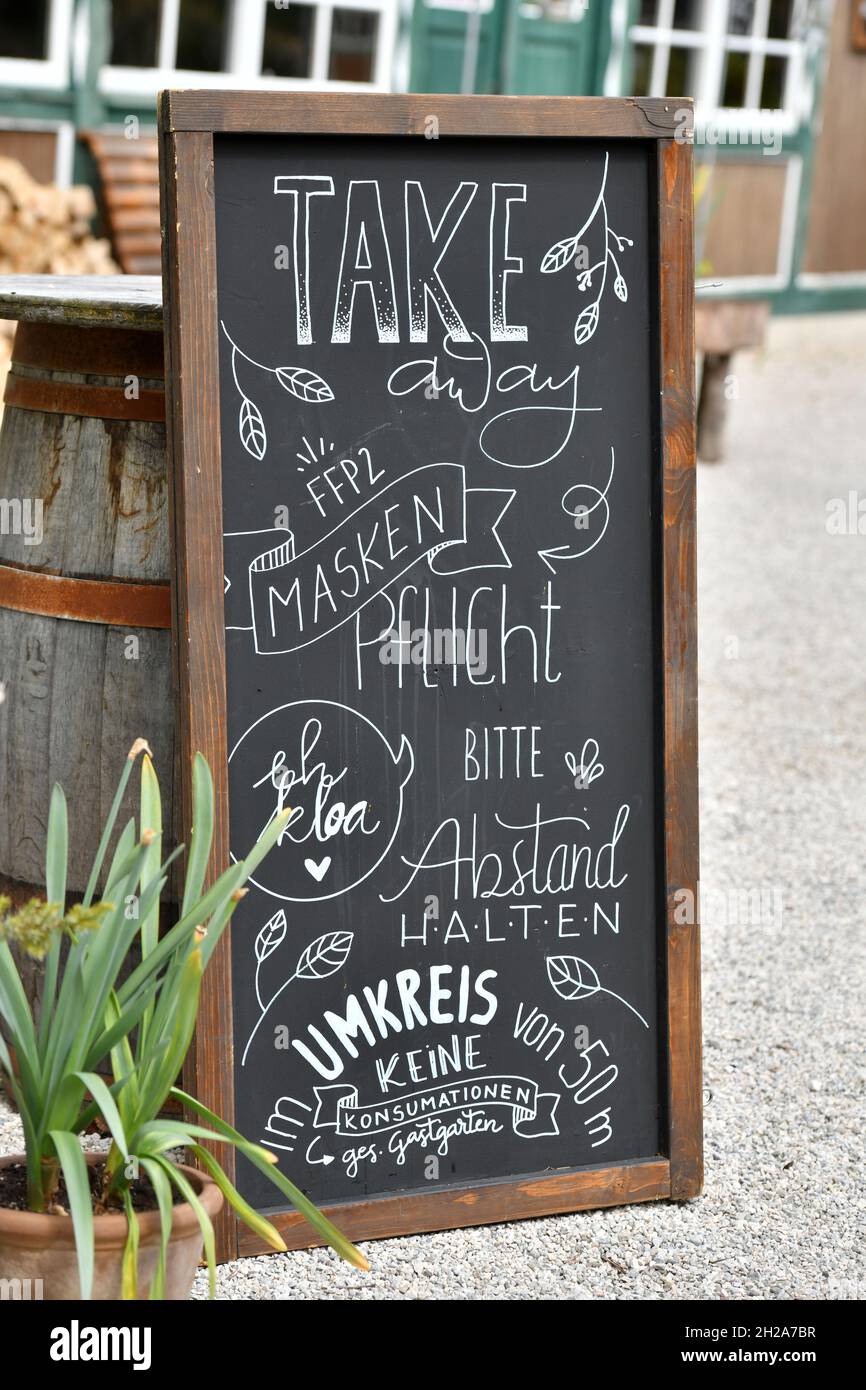 TAKE
away
FFP2
MASKEN
Pflicht
eh
kloa
BITTE
Abstand
H·A·L·T·E·N
im UMKREIS von 50m
KEINE
KONSUMATIONEN
ges. Gastgarten
alamy
Image ID: 2H2A7BR
www.alamy.com